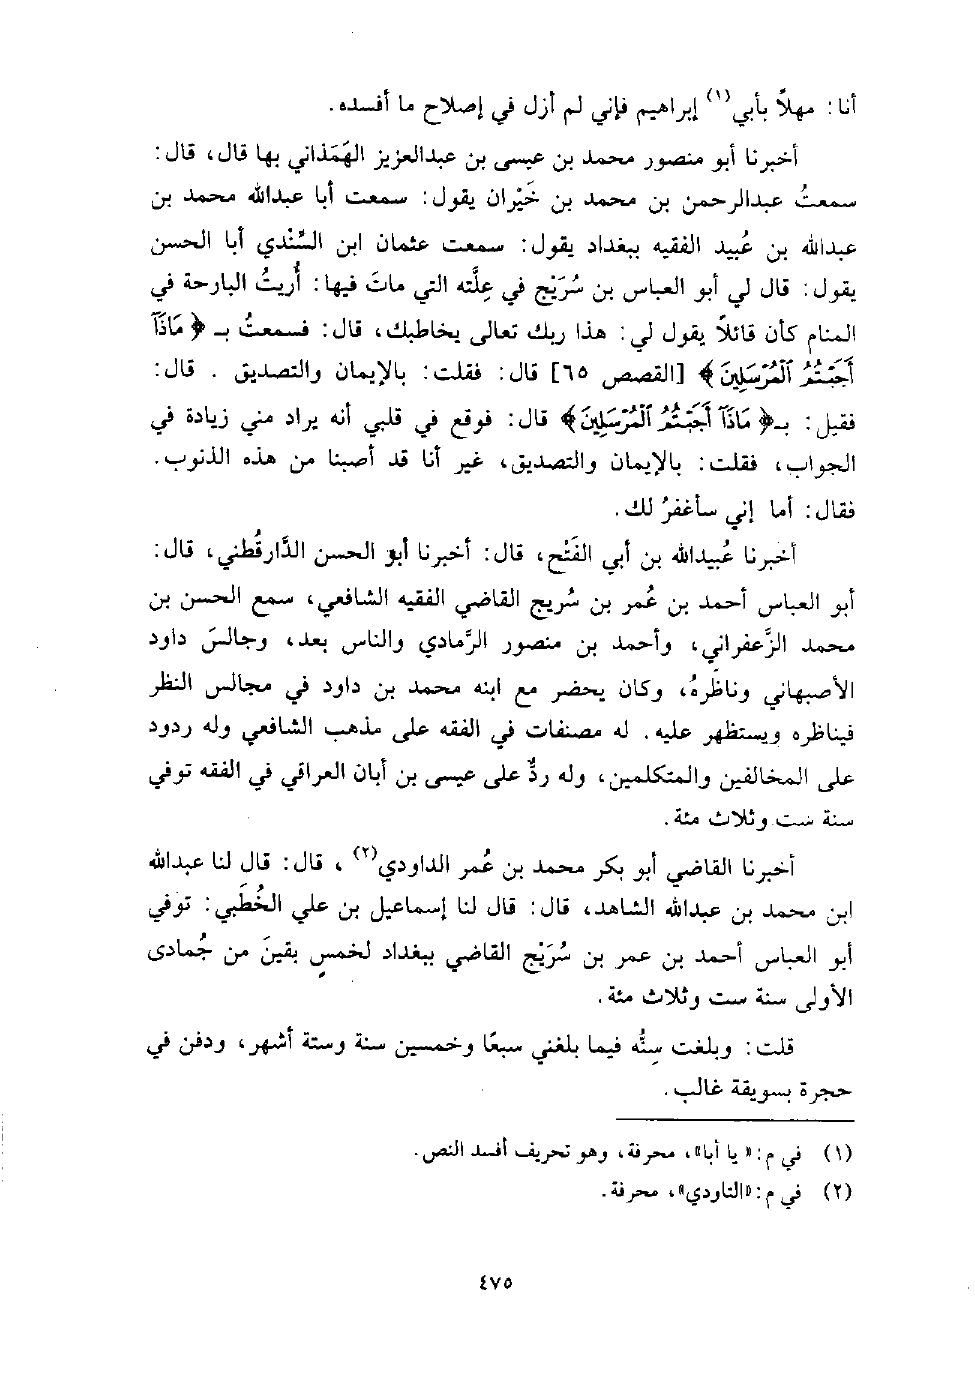 أنا: مهلاً بأبي(١) إبراهيم فإني لم أزل في إصلاح ما أفسده.
أخبرنا أبو منصور محمد بن عيسى بن عبدالعزيز الهَمَذاني بها قال، قال:
سمعتُ عبدالرحمن بن محمد بن خَيْران يقول: سمعت أبا عبدالله محمد بن
عبدالله بن عُبيد الفقيه ببغداد يقول: سمعت عثمان ابن السِّنْدي أبا الحسن
يقول: قال لي أبو العباس بن سُرَيْج في عِلَّته التي ماتَ فيها: أُريتُ البارحة في
المنام كأن قائلاً يقول لي: هذا ربك تعالى يخاطبك، قال: فسمعتُ بـ ﴿ مَاذَآ
أَجَبْتُمُ ٱلْمُرْسَلِينَ﴾ [القصص ٦٥] قال: فقلت: بالإيمان والتصديق . قال:
فقيل: بـ﴿ مَاذَآ أَجَبْتُمُ ٱلْمُرْسَلِينَ﴾ قال: فوقع في قلبي أنه يراد مني زيادة في
الجواب، فقلت: بالإيمان والتصديق، غير أنا قد أصبنا من هذه الذنوب.
فقال: أما إني سأغفرُ لك.
أخبرنا عُبيدالله بن أبي الفَتْح، قال: أخبرنا أبو الحسن الدَّارقُطني، قال:
أبو العباس أحمد بن عُمر بن سُريج القاضي الفقيه الشافعي، سمع الحسن بن
محمد الزَّعفراني، وأحمد بن منصور الرَّمادي والناس بعد، وجالسَ داود
الأصبهاني وناظرهُ، وكان يحضر مع ابنه محمد بن داود في مجالس النظر
فيناظره ويستظهر عليه. له مصنفات في الفقه على مذهب الشافعي وله ردود
على المخالفين والمتكلمين، وله ردٌّ على عيسى بن أبان العراقي في الفقه توفي
سنة ست وثلاث مئة.
أخبرنا القاضي أبو بكر محمد بن عُمر الداودي(٢) ، قال: قال لنا عبدالله
ابن محمد بن عبدالله الشاهد، قال: قال لنا إسماعيل بن علي الخُطَبي: توفي
أبو العباس أحمد بن عمر بن سُرَيْج القاضي ببغداد لخمسٍ بقينَ من جُمادى
الأولى سنة ست وثلاث مئة.
قلت: وبلغت سِنُّه فيما بلغني سبعًا وخمسين سنة وستة أشهر، ودفن في
حجرة بسويقة غالب.
(١) في م: «يا أبا»، محرفة، وهو تحريف أفسد النص.
(٢) في م: «التاودي»، محرفة.
٤٧٥